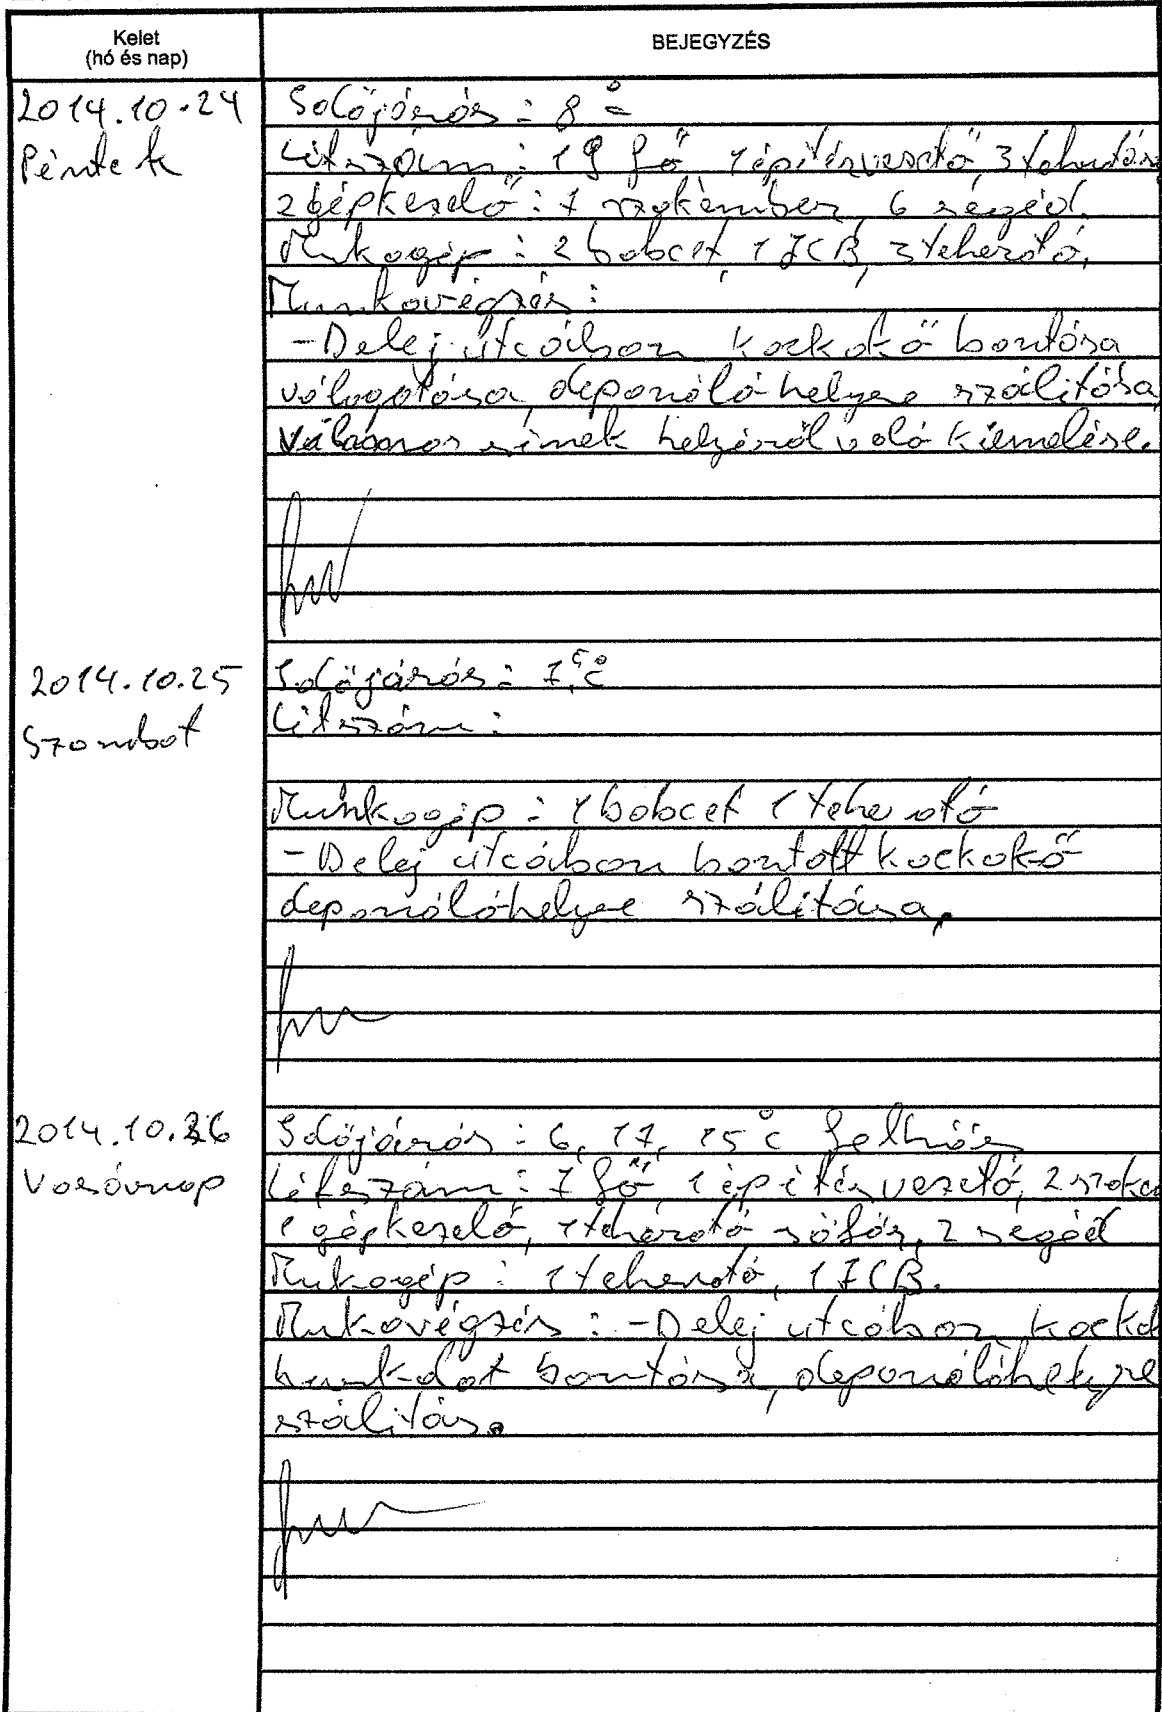 Kelet
(hó és nap)
BEJEGYZÉS
2014.10.24
Péntek
Időjárás: 8 °c
Létszám: 19 fő, 1 építésvezető, 3 teherautós
2 gépkezelő: 7 szakember, 6 segéd.
Munkagép: 2 bobcet, 1 JCB, 3 teherató.
Munkavégzés:
- Delej utcában kockakő bontása
válogatása, deponálóhelyre szálitása,
sinek helyéről való kiemelése.
2014.10.25
Szombat
Időjárás: 7 °c
Létszám:
Munkagép: 1 bobcet 1 teherató
- Delej utcában bontott kockakő
deponálóhelyre szálitása.
2014.10.26
Vasárnap
Időjárás: 6, 17, 15 °c felhős
Létszám: 7 fő, 1 építésvezető, 2 szake
1 gépkezelő, 1 teherató sőfőr, 2 segéd
Mukagép: 1 teherató, 1 JCB.
Mukavégzés: - Delej utcában kocka
burkolat bontása, deponálóhelyre
szálitás.